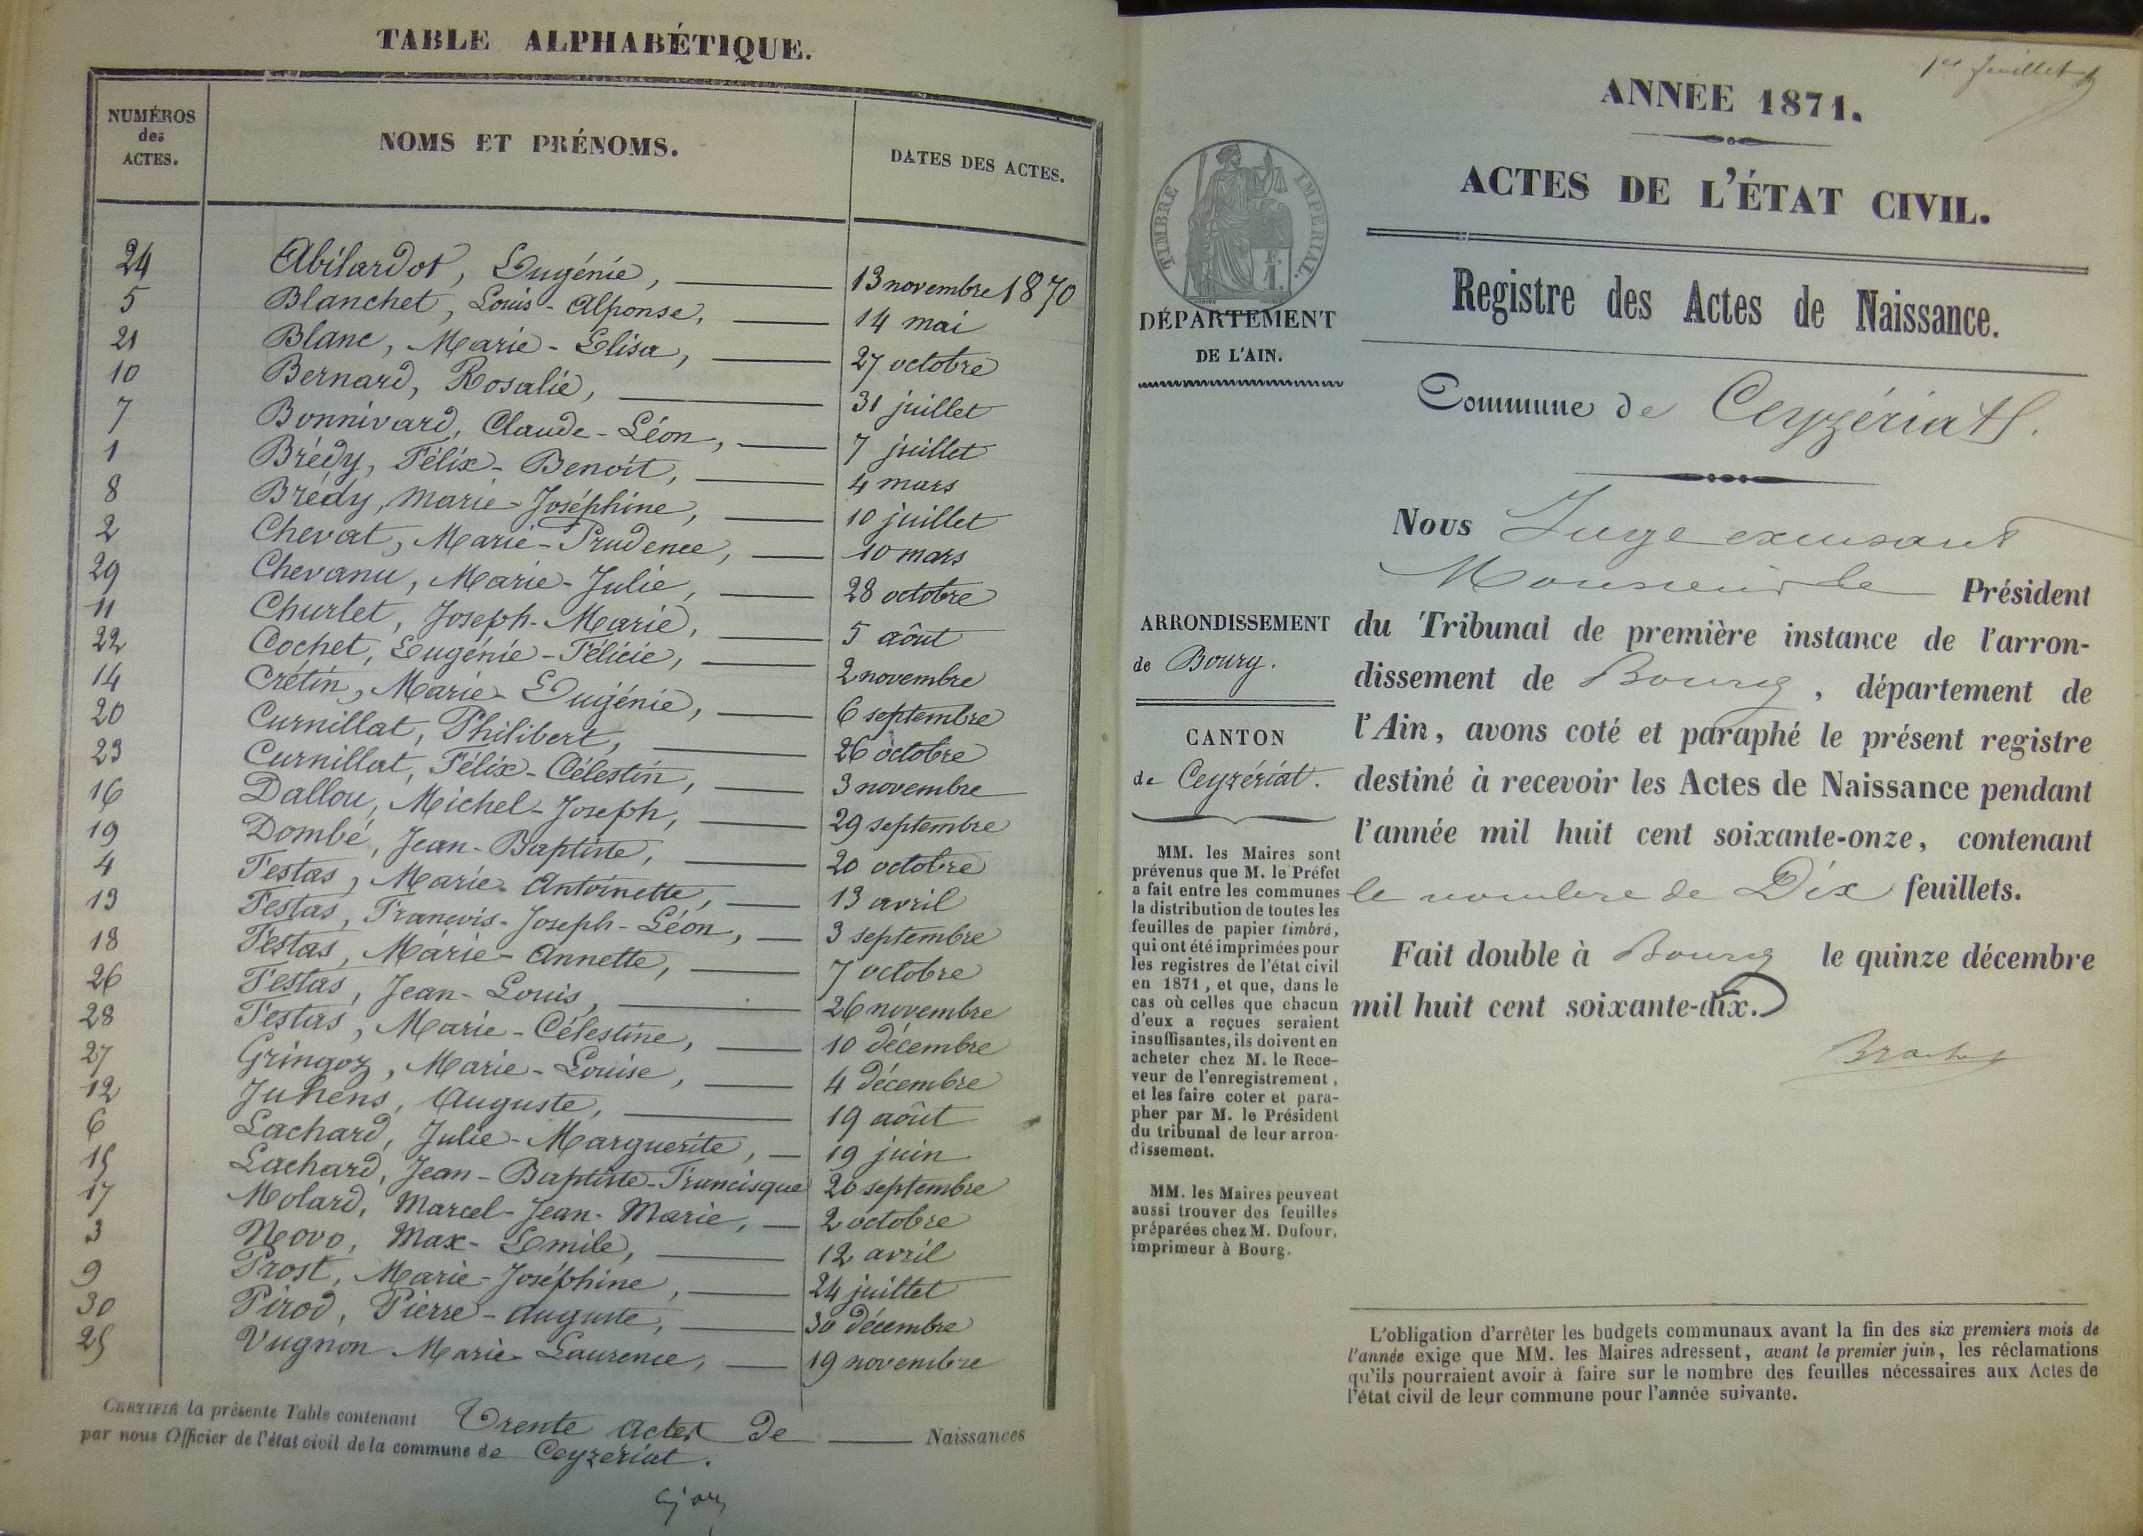 TABLE ALPHABÉTIQUE.
NUMÉROS
des
ACTES.
NOMS ET PRÉNOMS.
DATES DES ACTES.
24 Abilardot, Eugénie, 13 novembre 1870
5 Blanchet, Louis-Alponse, 14 mai
21 Blanc, Marie-Elisa, 27 octobre
10 Bernard, Rosalie, 31 juillet
7 Bonnivard, Claude-Léon, 7 juillet
1 Brédy, Félix-Benoit, 4 mars
8 Brédy, Marie-Joséphine, 10 juillet
2 Chevat, Marie-Prudence, 10 mars
29 Chevanu, Marie-Julie, 28 octobre
11 Churlet, Joseph-Marie, 5 aôut
22 Cochet, Eugénie-Félicie, 2 novembre
14 Crétin, Marie-Eugénie, 6 septembre
20 Curnillat, Philibert, 26 octobre
23 Curnillat, Félix-Célestin, 3 novembre
16 Dallou, Michel-Joseph, 29 septembre
19 Dombé, Jean-Baptiste, 20 octobre
4 Festas, Marie-Antoinette, 13 avril
13 Festas, François-Joseph-Léon, 3 septembre
18 Festas, Marie-Annette, 7 octobre
26 Festas, Jean-Louis, 26 novembre
28 Festas, Marie-Célestine, 10 décembre
27 Gringoz, Marie-Louise, 4 décembre
12 Juhens, Auguste, 19 aôut
6 Lachard, Julie-Marguerite, 19 juin
15 Lachard, Jean-Baptiste-Francisque 20 septembre
17 Molard, Marcel-Jean-Marie, 2 octobre
3 Novo, Max-Emile, 12 avril
9 Prost, Marie-Joséphine, 24 juillet
30 Pirod, Pierre-Auguste, 30 décembre
25 Vugnon Marie-Laurence, 19 novembre
CERTIFIÉ la présente Table contenant Trente actes de Naissances
par nous Officier de l'état civil de la commune de Ceyzériat.
1er feuillet
ANNÉE 1871.
ACTES DE L'ÉTAT CIVIL.
TIMBRE IMPÉRIAL.
1 f.
Registre des Actes de Naissance.
DÉPARTEMENT
DE L'AIN.
Commune de Ceyzériat.
Nous Juge excusant
Monsieur le Président
du Tribunal de première instance de l'arron-
dissement de Bourg, département de
l'Ain, avons coté et paraphé le présent registre
destiné à recevoir les Actes de Naissance pendant
l'année mil huit cent soixante-onze, contenant
le nombre de Dix feuillets.
Fait double à Bourg le quinze décembre
mil huit cent soixante-dix.
ARRONDISSEMENT
de Bourg.
CANTON
de Ceyzériat.
MM. les Maires sont
prévenus que M. le Préfet
a fait entre les communes
la distribution de toutes les
feuilles de papier timbré,
qui ont été imprimées pour
les registres de l'état civil
en 1871, et que, dans le
cas où celles que chacun
d'eux a reçues seraient
insuffisantes, ils doivent en
acheter chez M. le Rece-
veur de l'enregistrement,
et les faire coter et para-
pher par M. le Président
du tribunal de leur arron-
dissement.
MM. les Maires peuvent
aussi trouver des feuilles
préparées chez M. Dufour,
imprimeur à Bourg.
L'obligation d'arrêter les budgets communaux avant la fin des six premiers mois de
l'année exige que MM. les Maires adressent, avant le premier juin, les réclamations
qu'ils pourraient avoir à faire sur le nombre des feuilles nécessaires aux Actes de
l'état civil de leur commune pour l'année suivante.